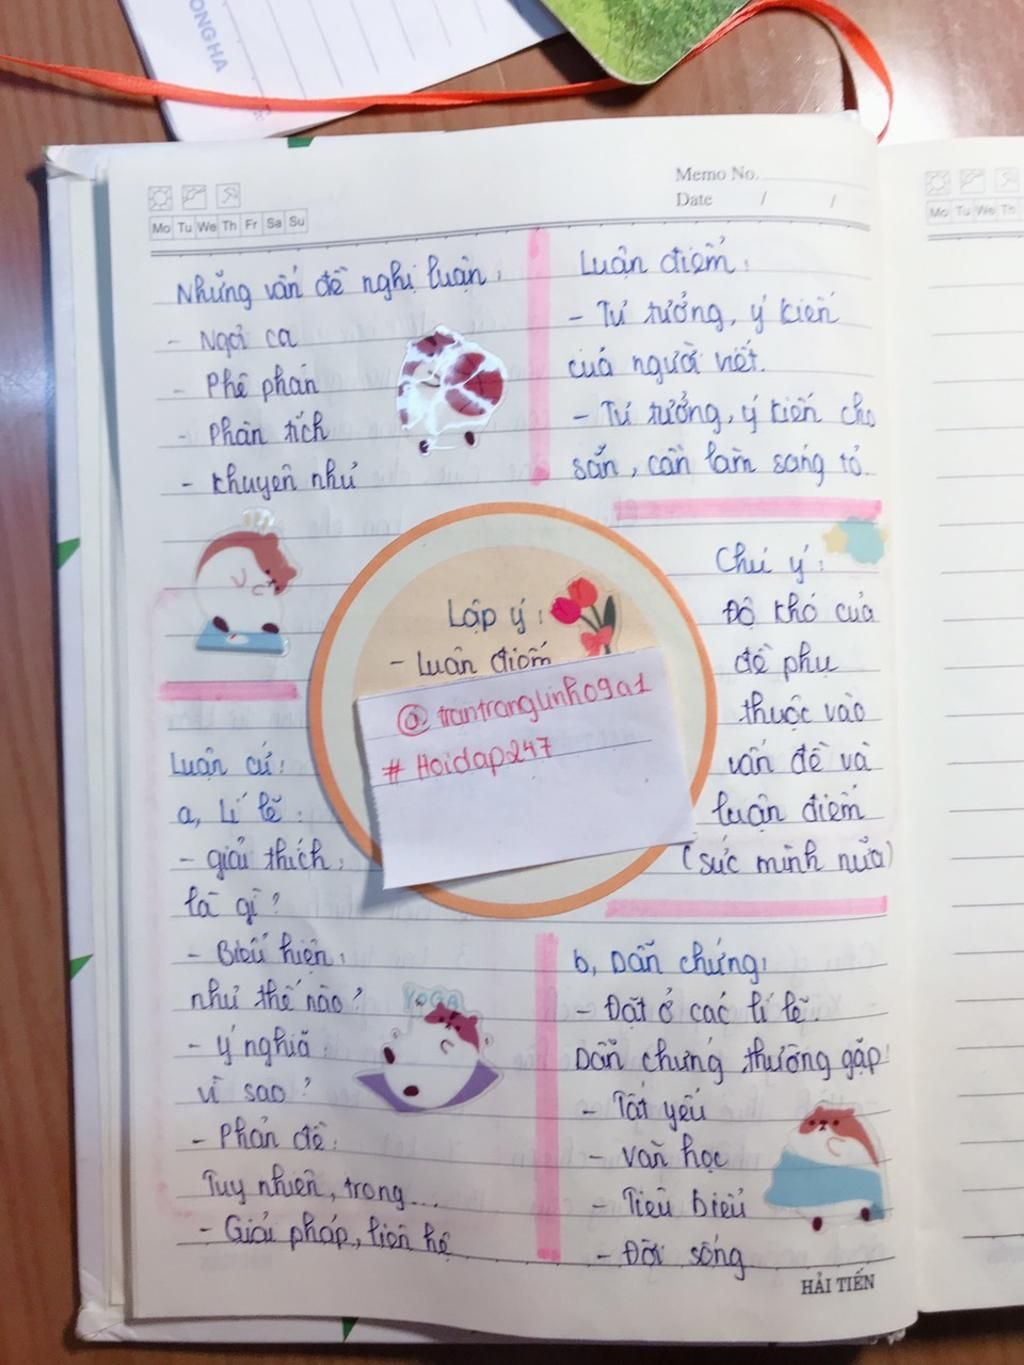 ONGHA
Memo No.
Date / /
Mo Tu We Th Fr Sa Su
Mo Tu We Th
Những vấn đề nghị luận:
- Ngợi ca
- Phê phán
- Phân tích
- Khuyên nhủ
Luận điểm:
- Tư tưởng, ý kiến
của người viết.
- Tư tưởng, ý kiến cho
sẵn, cần làm sáng tỏ.
Lập ý:
- Luận điểm
@trantranglinh09a1
# Hoidap247
Chú ý:
Độ khó của
đề phụ
thuộc vào
vấn đề và
luận điểm
(sức mình nữa)
Luận cứ:
a, Lí lẽ:
- giải thích:
là gì?
- Biểu hiện:
như thế nào?
- Ý nghĩa:
vì sao?
- Phản đề:
Tuy nhiên, trong...
- Giải pháp, liên hệ
YOGA
b, Dẫn chứng:
- Đặt ở các lí lẽ.
Dẫn chứng thường gặp:
- Tất yếu
- Văn học
- Tiêu biểu
- Đời sống
HẢI TIẾN